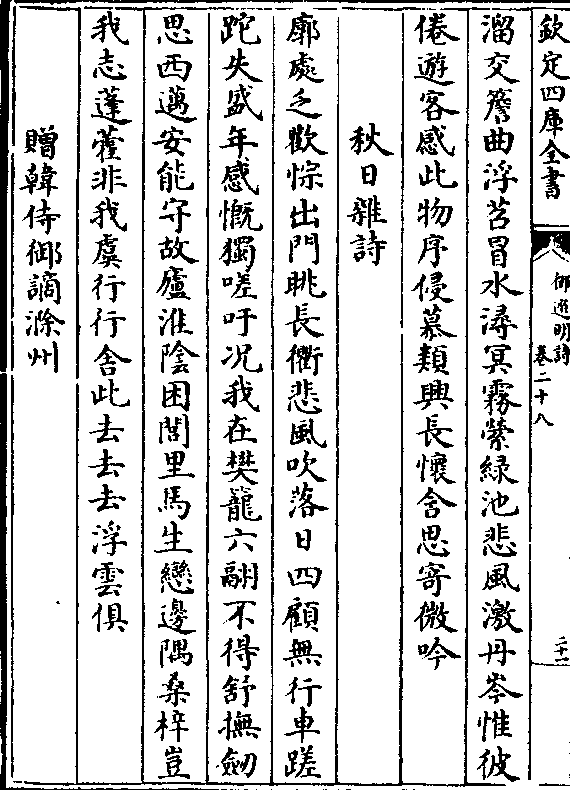 欽定四庫全書
御選明詩
卷二十八
二十一
溜交簷曲浮苔冒水潯冥霧縈緑池悲風激丹岑惟彼
倦遊客感此物序侵慕類興長懷含思寄微吟
秋日雜詩
廓處乏歡悰出門眺長衢悲風吹落日四顧無行車蹉
跎失盛年感慨獨嗟吁况我在樊籠六翮不得舒撫劒
思西邁安能守故廬淮陰困閭里馬生戀邊隅桑梓豈
我志蓬藿非我虞行行舍此去去去浮雲俱
贈韓侍御謫滁州